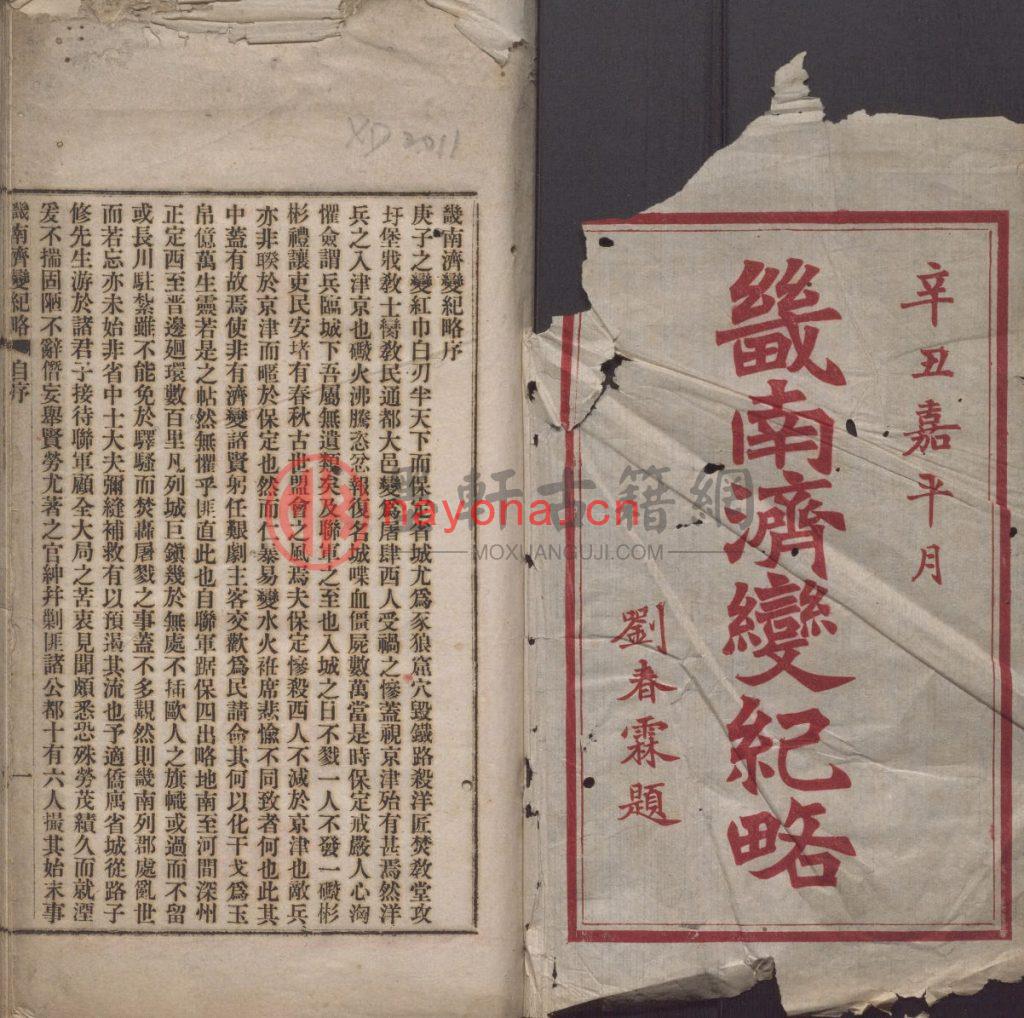 辛丑嘉平月
畿南濟變紀略
劉春霖題
畿南濟變紀略序
庚子之變紅巾白刃半天下而保定省城尤爲豕狼窟穴毀鐵路殺洋匠焚敎堂攻
圩堡戕敎士臠敎民通都大邑變爲屠肆西人受禍之慘蓋視京津殆有甚焉然洋
兵之入津京也礮火沸騰恣忿報復名城喋血僵屍數萬當是時保定戒嚴人心洶
懼僉謂兵臨城下吾屬無遺類矣及聯軍之至也入城之日不戮一人不發一礮彬
彬禮讓吏民安堵有春秋古世盟會之風焉夫保定慘殺西人不減於京津也敵兵
亦非睽於京津而暱於保定也然而仁暴易變水火袵席悲愉不同致者何也此其
中蓋有故焉使非有濟變諸賢躬任艱劇主客交歡爲民請命其何以化干戈爲玉
帛億萬生靈若是之帖然無懼乎匪直此也自聯軍踞保四出略地南至河間深州
正定西至晋邊廻環數百里凡列城巨鎭幾於無處不插歐人之旗幟或過而不留
或長川駐紮雖不能免於驛騷而焚轟屠戮之事蓋不多覯然則畿南列郡處亂世
而若忘亦未始非省中士大夫彌縫補救有以預遏其流也予適僑寓省城從路子
修先生游於諸君子接待聯軍顧全大局之苦衷見聞頗悉恐殊勞茂績久而就湮
爰不揣固陋不辭僭妄舉賢勞尤著之官紳幷剿匪諸公都十有六人撮其始末事
畿南濟變紀略 自序 一
XD 2011
nayona.cn
軒古籍網
MOXUANGUJI.COM